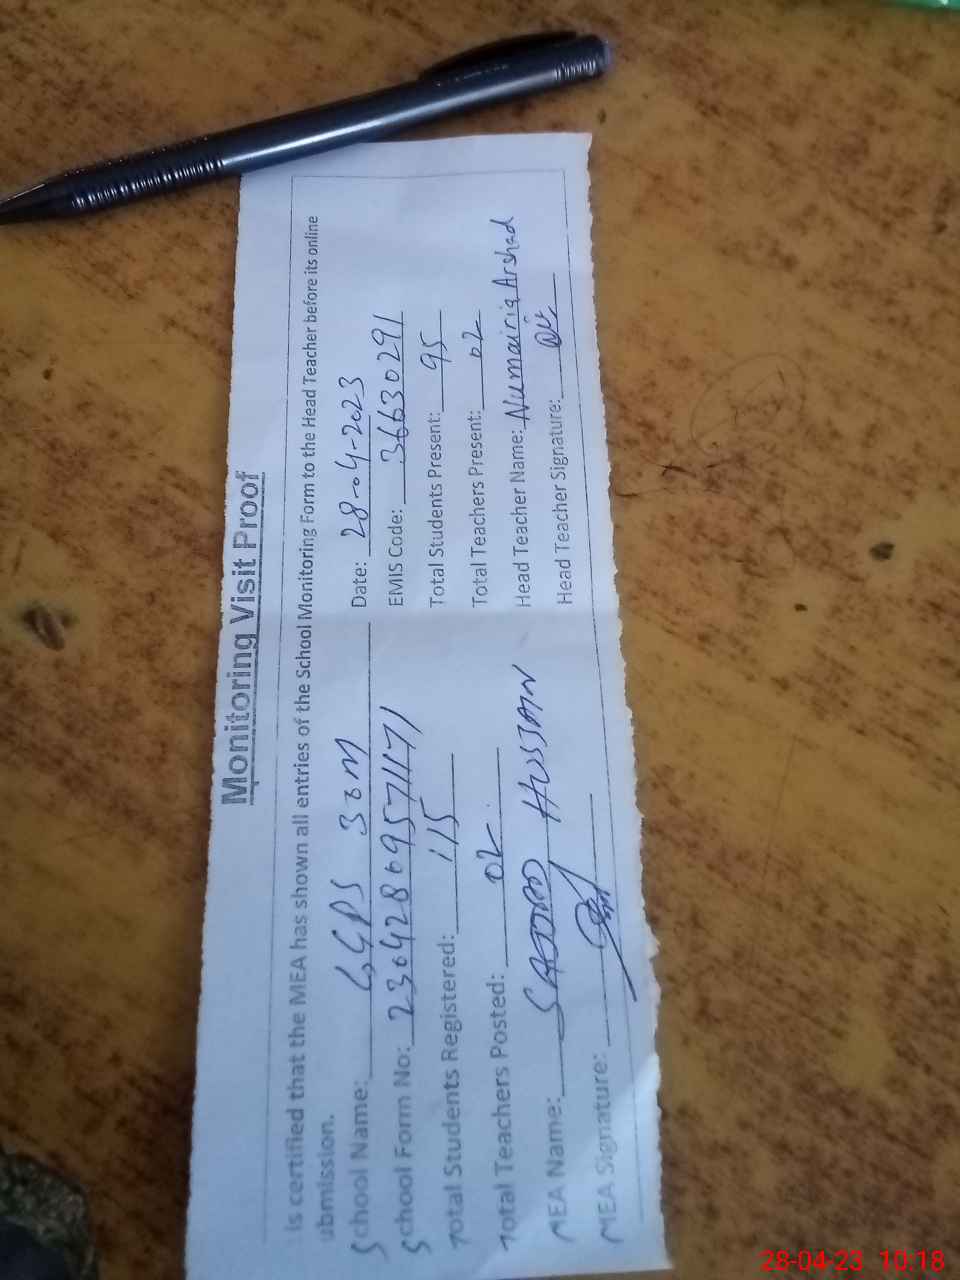 Monitoring Visit Proof
is certified that the MEA has shown all entries of the School Monitoring Form to the Head Teacher before its online
ubmission.
School Name: GGPS 30 M Date: 28-04-2023
School Form No: EMIS Code: 36630291
Total Students Registered: 115 Total Students Present: 95
Total Teachers Posted: 02 Total Teachers Present: 02
MEA Name: SAJJAD HUSSAIN Head Teacher Name: Numairia Arshad
MEA Signature: Head Teacher Signature:
28-04-23 10:18